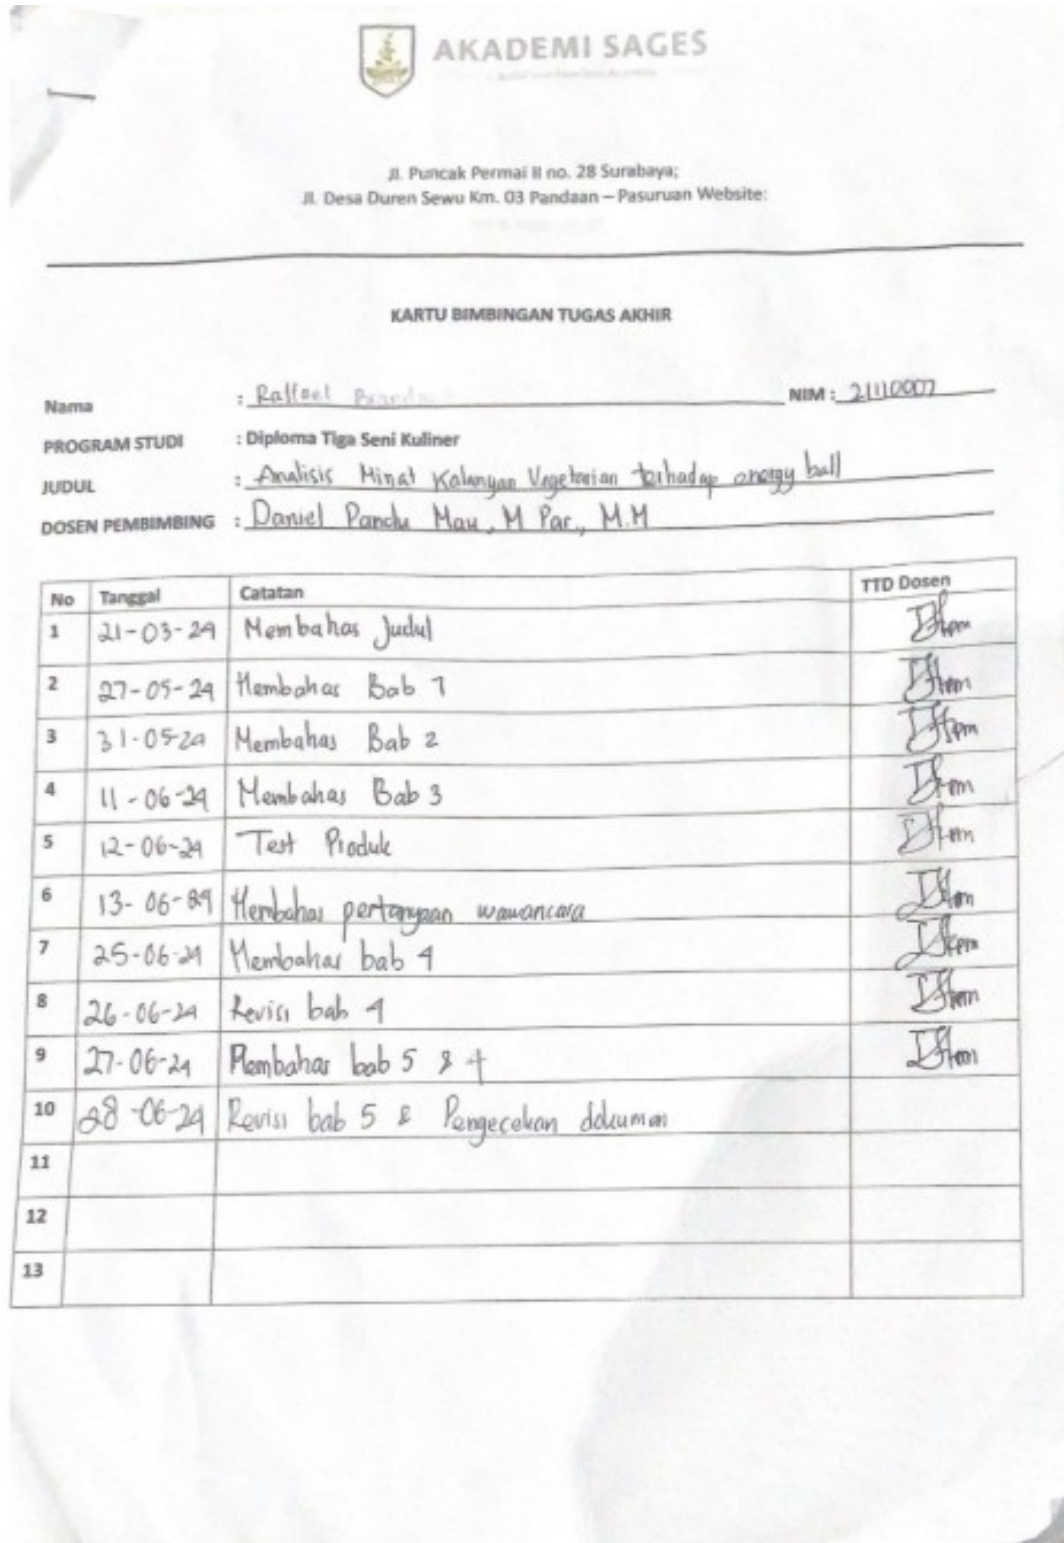 AKADEMI SAGES
Jl. Puncak Permai II no. 28 Surabaya;
Jl. Desa Duren Sewu Km. 03 Pandaan – Pasuruan Website:
KARTU BIMBINGAN TUGAS AKHIR
Nama : Raffael NIM : 21110007
PROGRAM STUDI : Diploma Tiga Seni Kuliner
JUDUL : Analisis Minat Kalangan Vegetarian terhadap energy ball
DOSEN PEMBIMBING : Daniel Pandu Mau, M Par., M.M
No Tanggal Catatan TTD Dosen
1 21-03-24 Membahas Judul
2 27-05-24 Membahas Bab 1
3 31-05-24 Membahas Bab 2
4 11-06-24 Membahas Bab 3
5 12-06-24 Test Produk
6 13-06-24 Membahas pertanyaan wawancara
7 25-06-24 Membahas bab 4
8 26-06-24 Revisi bab 4
9 27-06-24 Membahas bab 5 & 4
10 28-06-24 Revisi bab 5 & Pengecekan dokumen
11
12
13